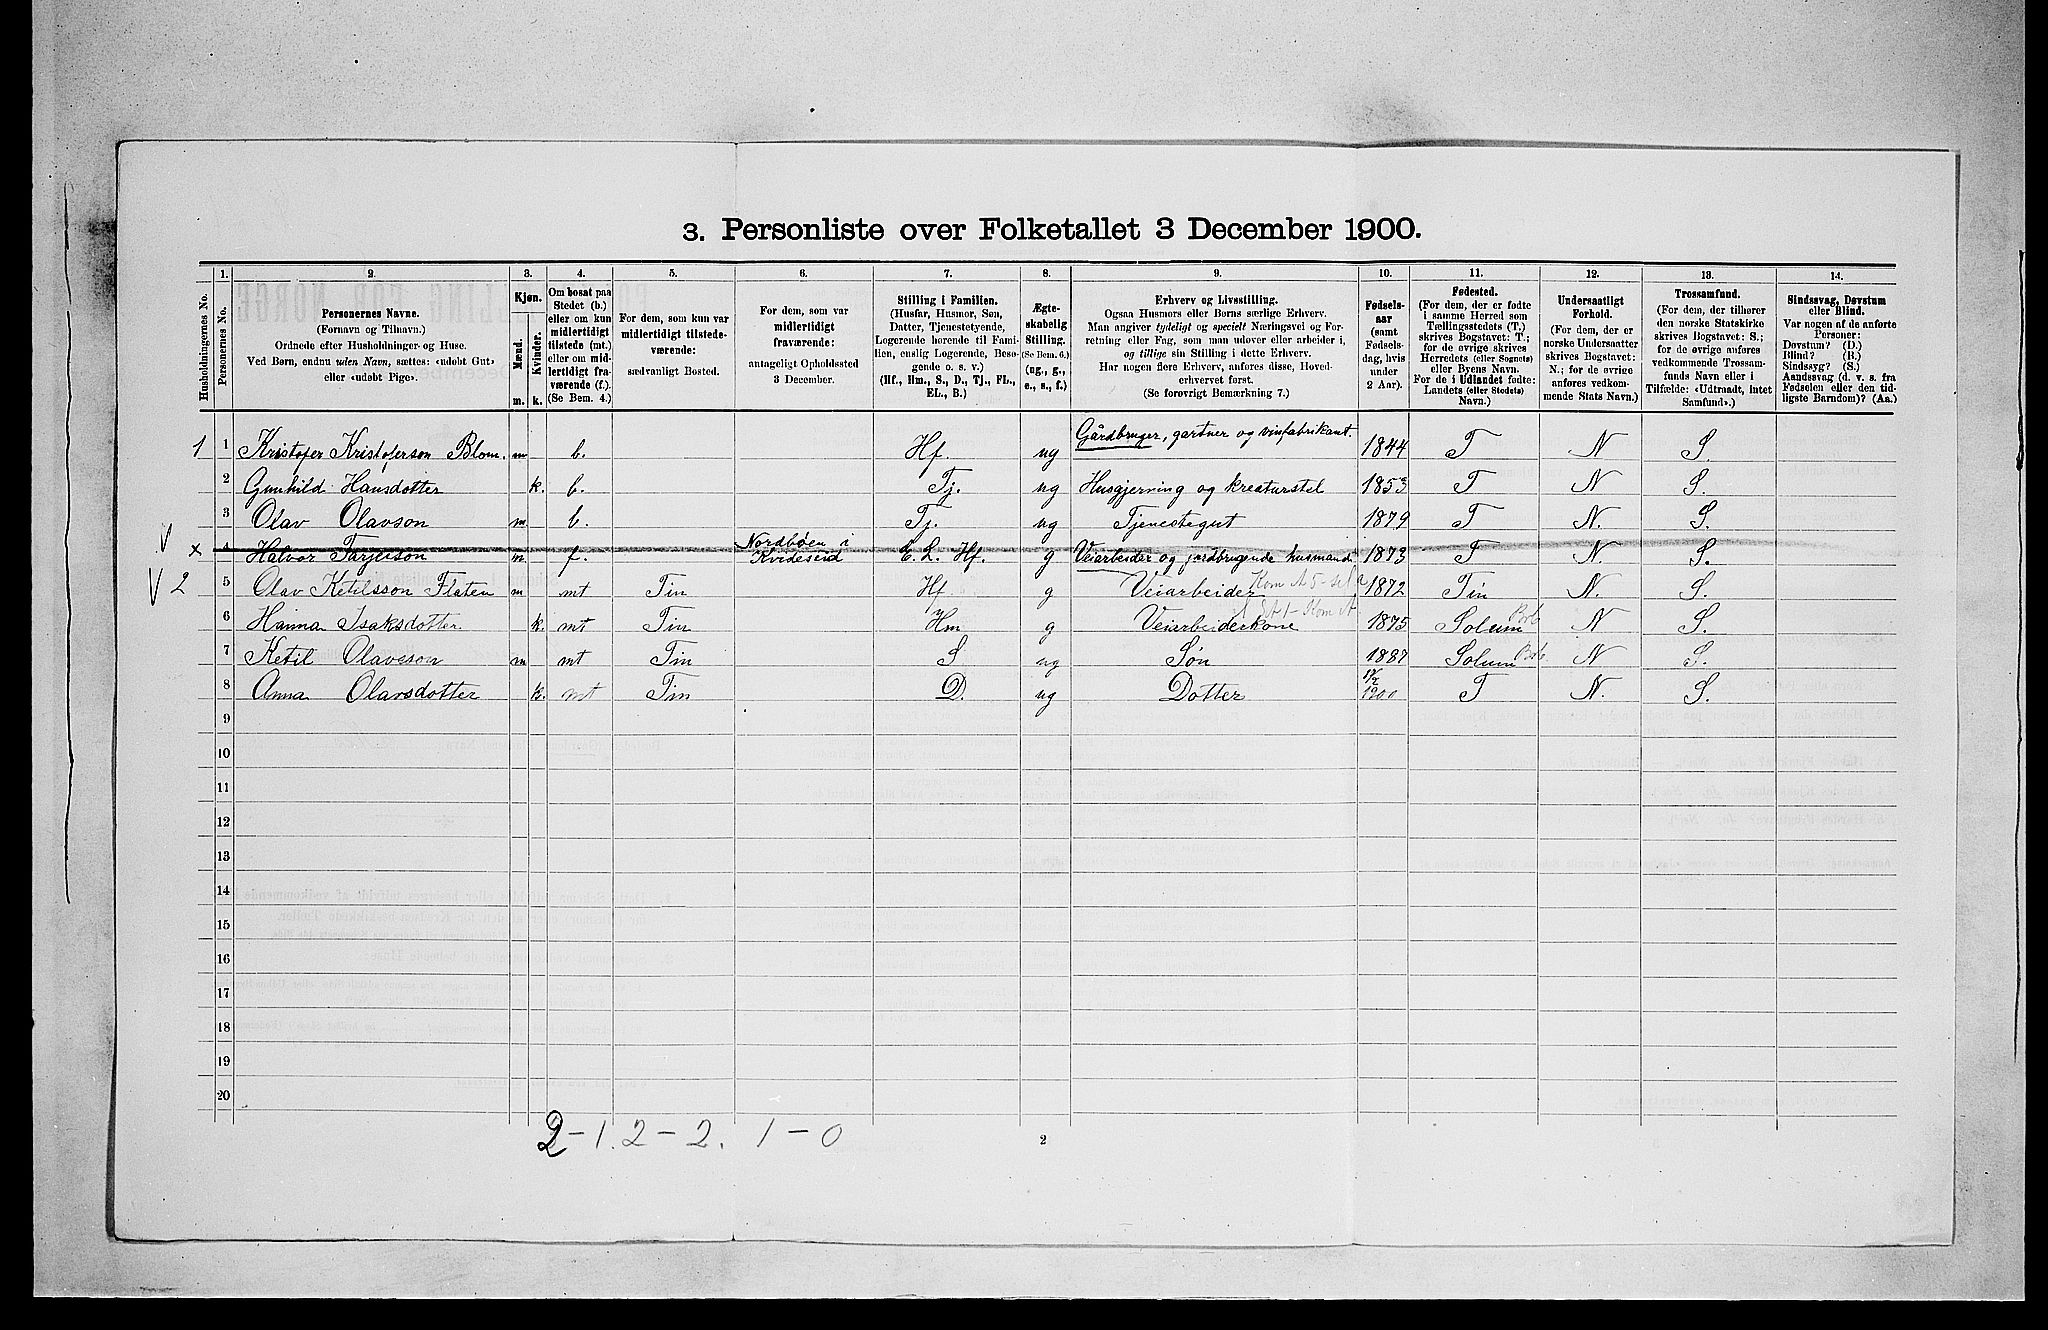 3. Personliste over Folketallet 3 December 1900.
Husholdningernes No.
1.
Personernes No.
2.
Personernes Navne.
(Fornavn og Tilnavn.)
Ordnede efter Husholdninger og Huse.
Ved Børn, endnu uden Navn, sættes: «udøbt Gut»
eller «udøbt Pige».
3.
Kjøn.
Mænd.
Kvinder.
m.
k.
4.
Om bosat paa
Stedet (b.)
eller om kun
midlertidigt
tilstede (mt.)
eller om mid-
lertidigt fra-
værende (f.).
(Se Bem. 4.)
5.
For dem, som kun var
midlertidigt tilstede-
værende:
sædvanligt Bosted.
6.
For dem, som var
midlertidigt
fraværende:
antageligt Opholdssted
3 December.
7.
Stilling i Familien.
(Husfar, Husmor, Søn,
Datter, Tjenestetyende,
Logerende hørende til Fami-
lien, enslig Logerende, Besø-
gende o. s. v.)
(Hf., Hm., S., D., Tj., FL.,
EL., B.)
8.
Ægte-
skabelig
Stilling.
(Se Bem. 6.)
(ug., g.,
e., s., f.)
9.
Erhverv og Livsstilling.
Ogsaa Husmors eller Børns særlige Erhverv.
Man angiver tydeligt og specielt Næringsvei og For-
retning eller Fag, som man udøver eller arbeider i,
og tillige sin Stilling i dette Erhverv.
Har nogen flere Erhverv, anføres disse, Hoved-
erhvervet først.
(Se forøvrigt Bemærkning 7.)
10.
Fødsels-
aar
(samt
Fødsels-
dag, hvis
under
2 Aar).
11.
Fødested.
(For dem, der er fødte
i samme Herred som
Tællingsstedets (T.)
skrives Bogstavet: T.;
for de øvrige skrives
Herredets (eller Sognets)
eller Byens Navn.
For de i Udlandet fødte:
Landets (eller Stedets)
Navn.)
12.
Undersaatligt
Forhold.
(For dem, der er
norske Undersaatter
skrives Bogstavet:
N.; for de øvrige
anføres vedkom-
mende Stats Navn.)
13.
Trossamfund.
(For dem, der tilhører
den norske Statskirke
skrives Bogstavet: S.;
for de øvrige anføres
vedkommende Trossam-
funds Navn eller i
Tilfælde: «Udtraadt, intet
Samfund».)
14.
Sindssvag, Døvstum
eller Blind.
Var nogen af de anførte
Personer:
Døvstum? (D.)
Blind? (B.)
Sindssyg? (S.)
Aandssvag (d. v. s. fra
Fødselen eller den tid-
ligste Barndom)? (Aa.)
1 1 Kristofer Kristoferson Blom. m b. Hf. ug Gårdbruger, gartner og vinfabrikant. 1844 T N S.
2 Gunhild Hansdotter k. b. Tj. ug Husgjerning og kreaturstel 1853 T N S.
3 Olav Olavson m b. Tj. ug Tjenestegut 1879 T N. S.
V x 4 Halvor Tarjeison m f. Nordbøen i Kvideseid E. L. Hf. g Veiarbeider og jordbrugende husmand 1873 T N. S.
V 2 5 Olav Ketilsson Flaten m mt Tin Hf. g Veiarbeider 1872 Tin N. S.
6 Hanna Isaksdotter k. mt Tin Hm g Veiarbeiderkone 1875 Solum Brb N S.
7 Ketil Olaveson m mt Tin S ug Søn 1887 Solum Brb. N S.
8 Anna Olavsdotter k. mt Tin D. ug Dotter 1900 T N. S.
9
10
11
12
13
14
15
16
17
18
19
20
2-1. 2-2. 1-0
2